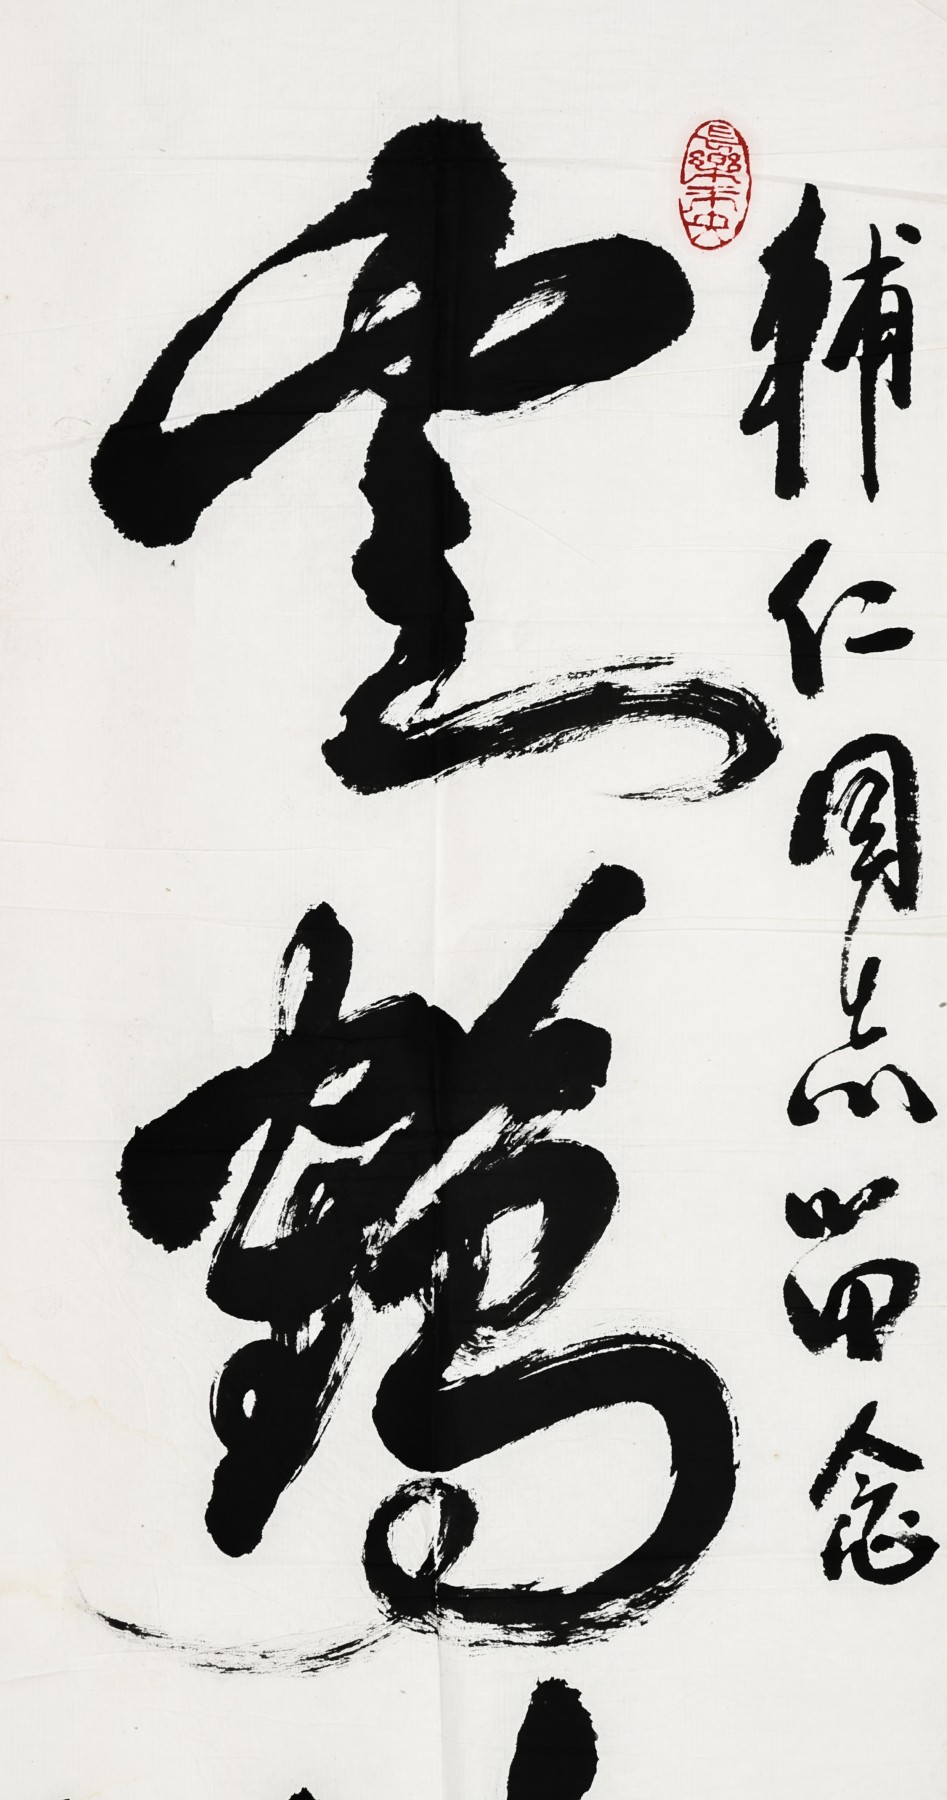 輔仁同志留念
長樂未央
雲鶴